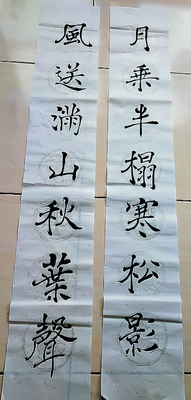 月乘半榻寒松影
風送滿山秋葉聲